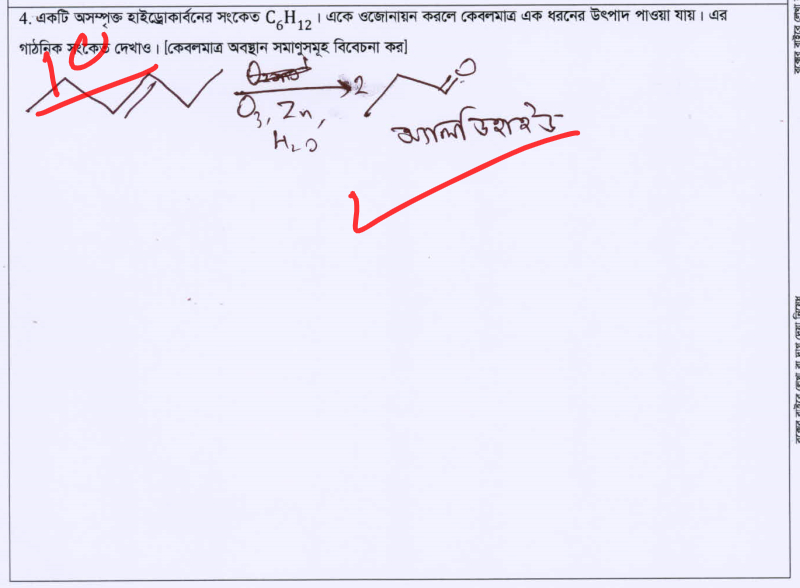 4. একটি অসম্পৃক্ত হাইড্রোকার্বনের সংকেত C₆H₁₂ । একে ওজোনায়ন করলে কেবলমাত্র এক ধরনের উৎপাদ পাওয়া যায়। এর
গাঠনিক সংকেত দেখাও। [কেবলমাত্র অবস্থান সমাণুসমূহ বিবেচনা কর]
10
O₃, Zn,
H₂O
2
O
অ্যালডিহাইড